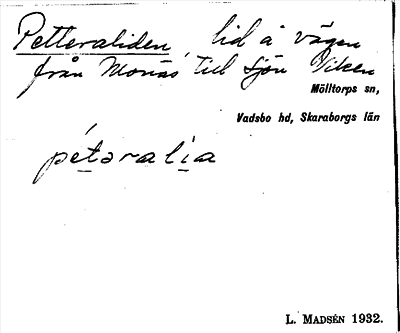 Petteraliden, lid å vägen
från Monäs till sjön Viken
Mölltorps sn,
Vadsbo hd, Skaraborgs län
pétəralia
L. MADSÉN 1932.